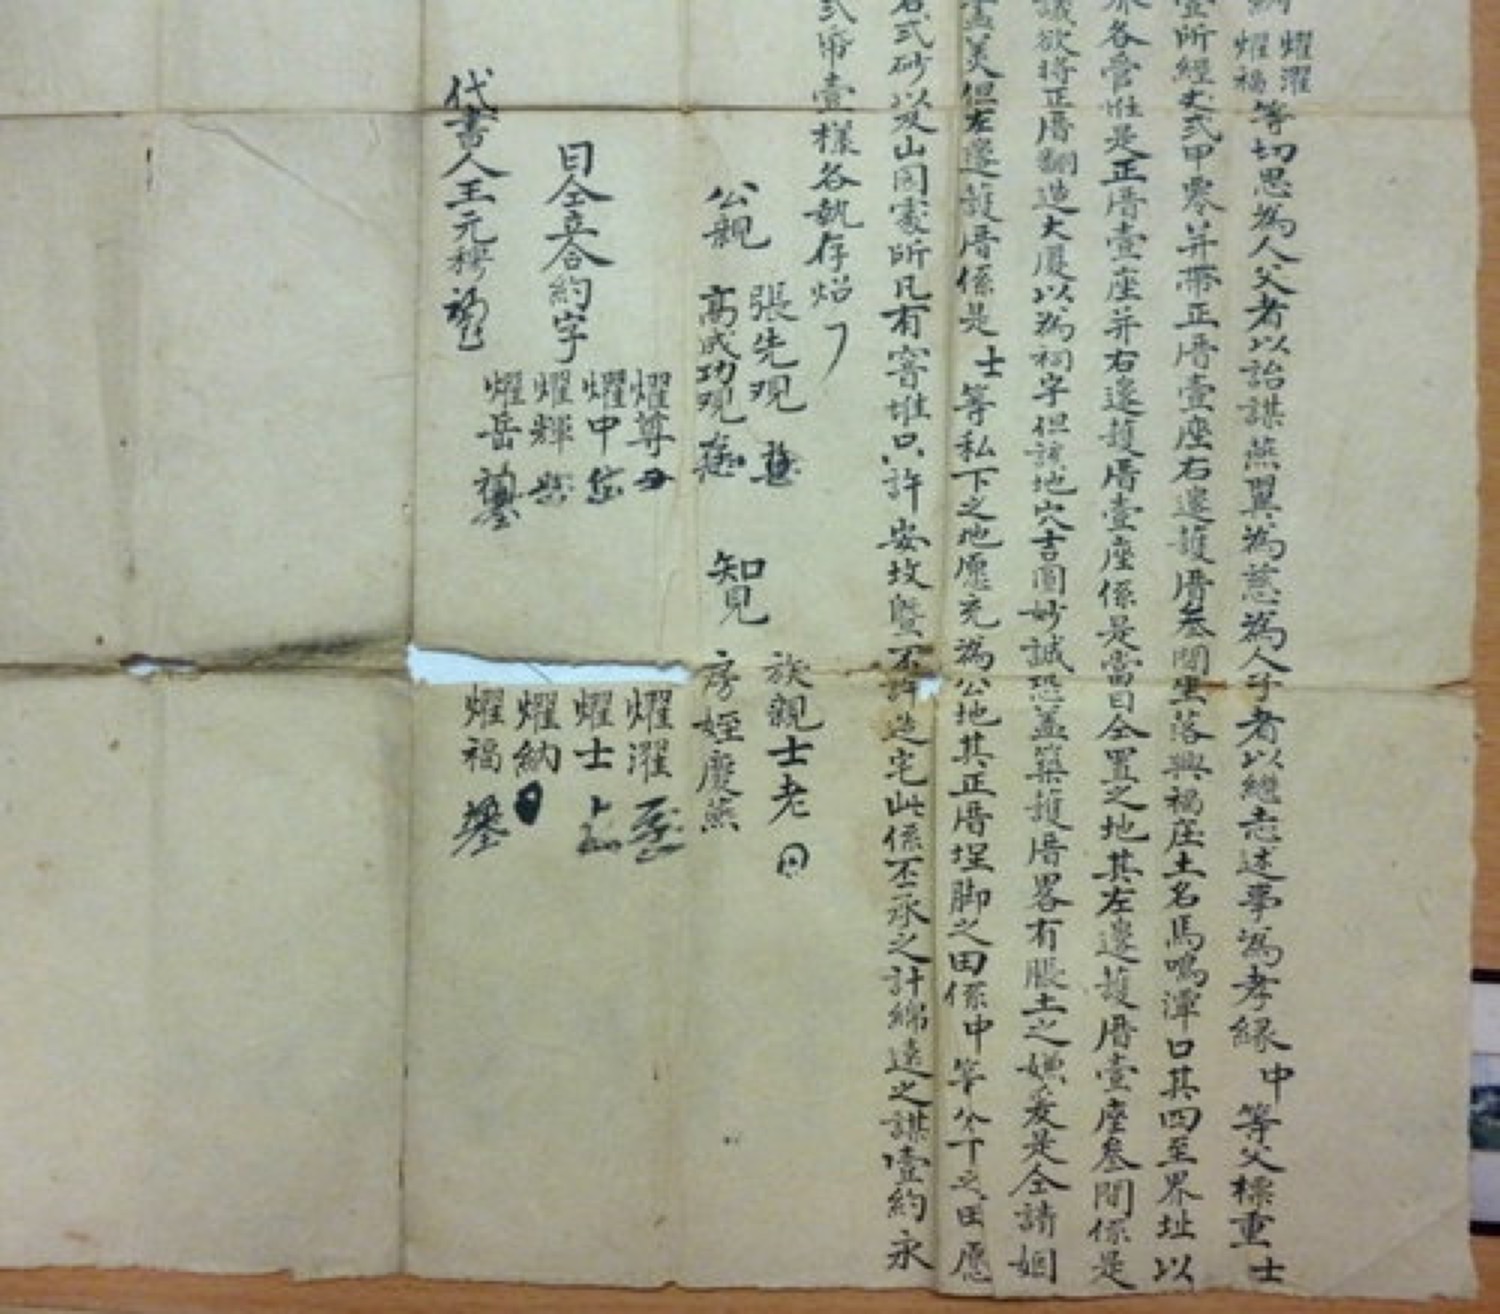 耀濯
耀福
等切思為人父者以詒謀燕翼為慈為人子者以繼志述事為孝緣中等父標重士
壹所經丈弍甲零并帶正厝壹座右邊護厝叁間坐落興福庄土名馬鳴潭口其四至界址以
各管惟是正厝壹座并右邊護厝壹座係是當日仝置之地其左邊護厝壹座叁間係是
議欲將正厝翻造大廈以為祠宇但該地穴吉圖妙誠恐蓋築護厝畧有脹土之嫌爰是仝請姻
美但左邊護厝係是士等私下之地愿充為公地其正厝埕脚之田係中等分下之田愿
弍砂以及山園窠所凡有窨堆只許安坟塋不許造宅此係丕承之計綿遠之謀壹約永
弍帋壹樣各執存炤
張先观
公親 高成功观
族親士老
知見 房姪慶燕
日仝立合約字
耀尊
耀中
耀輝
耀岳
耀濯
耀士
耀納
耀福
代書人王元